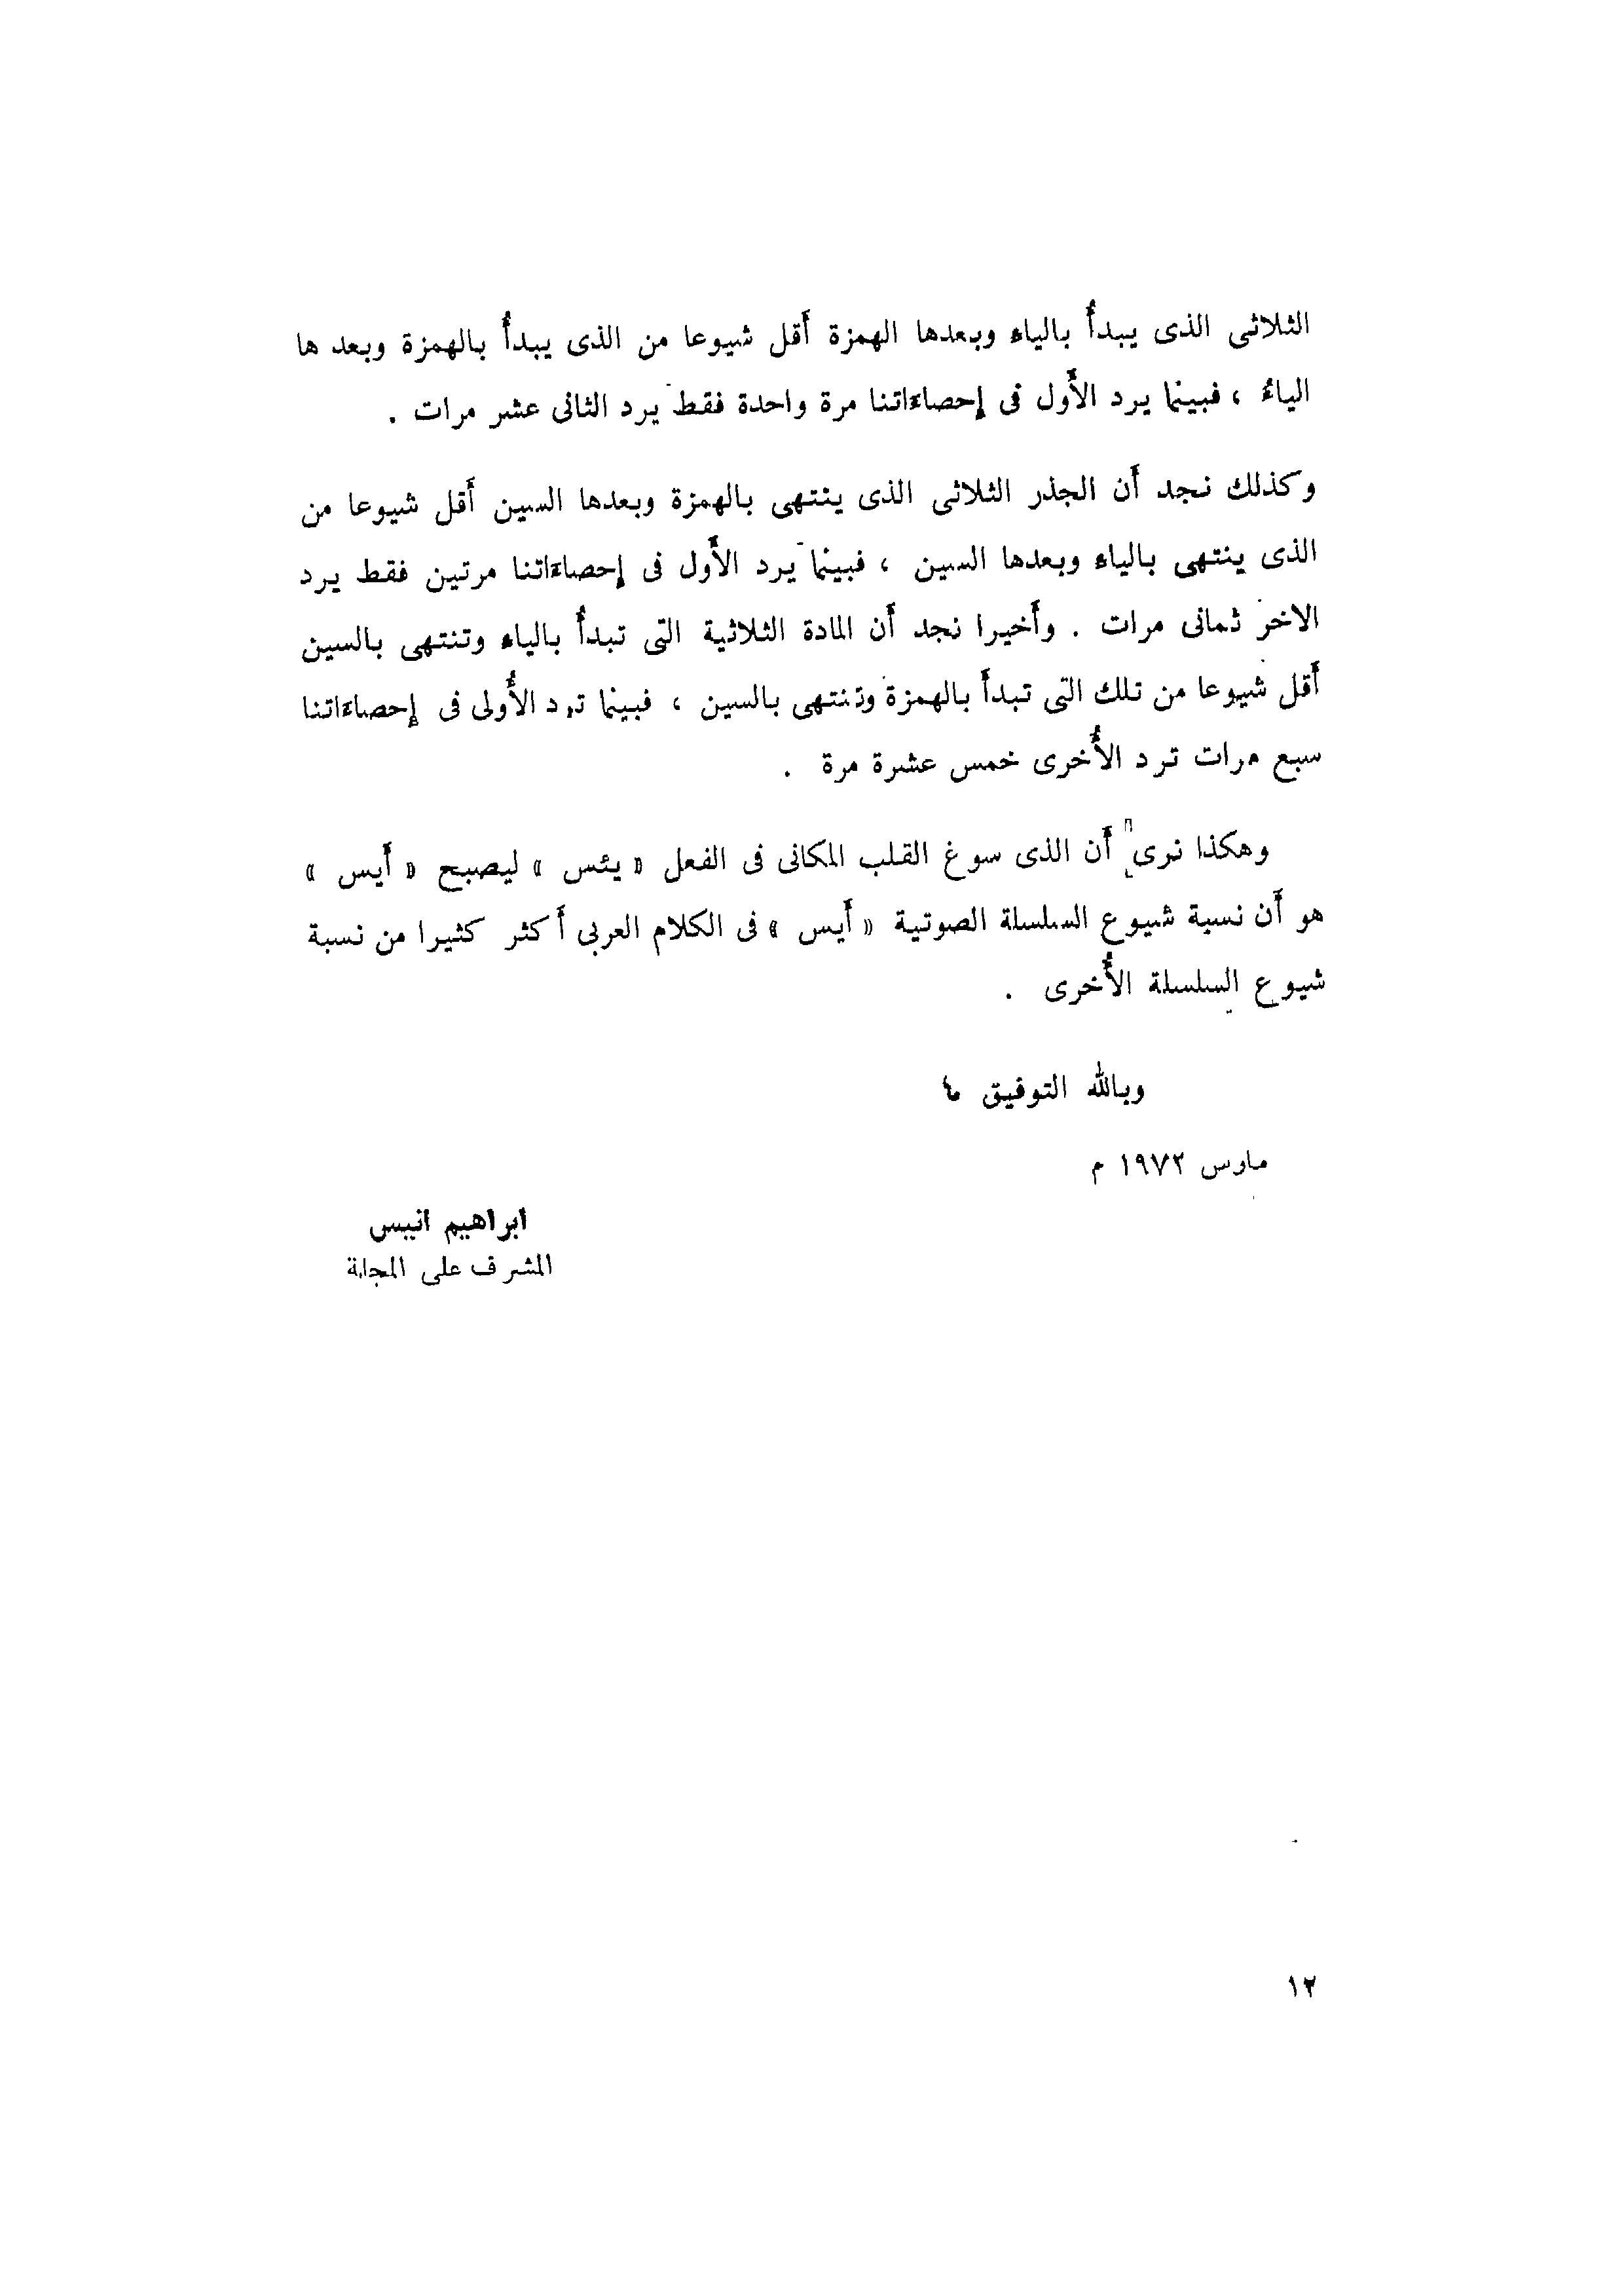 الثلاثى الذى يبدأُ بالياء وبعدها الهمزة أَقل شيوعا من الذى يبدأُ بالهمزة وبعدها
الياءُ ، فبينما يرد الأَول فى إحصاءاتنا مرة واحدة فقط يرد الثانى عشر مرات .
وكذلك نجد أَن الجذر الثلاثى الذى ينتهى بالهمزة وبعدها السين أَقل شيوعا من
الذى ينتهى بالياء وبعدها السين ، فبينما يرد الأَول فى إحصاءاتنا مرتين فقط يرد
الاخر ثمانى مرات . وأَخيرا نجد أَن المادة الثلاثية التى تبدأُ بالياء وتنتهى بالسين
أَقل شيوعا من تلك التى تبدأَ بالهمزة وتنتهى بالسين ، فبينما ترد الأُولى فى إحصاءاتنا
سبع مرات ترد الأُخرى خمس عشرة مرة .
وهكذا نرى أَن الذى سوغ القلب المكانى فى الفعل « يئس » ليصبح « أَيس »
هو أَن نسبة شيوع السلسلة الصوتية « أَيس » فى الكلام العربى أَكثر كثيرا من نسبة
شيوع السلسلة الأُخرى .
وبالله التوفيق ،
مارس ١٩٧٢ م
ابراهيم انيس
المشرف على المجلة
١٢